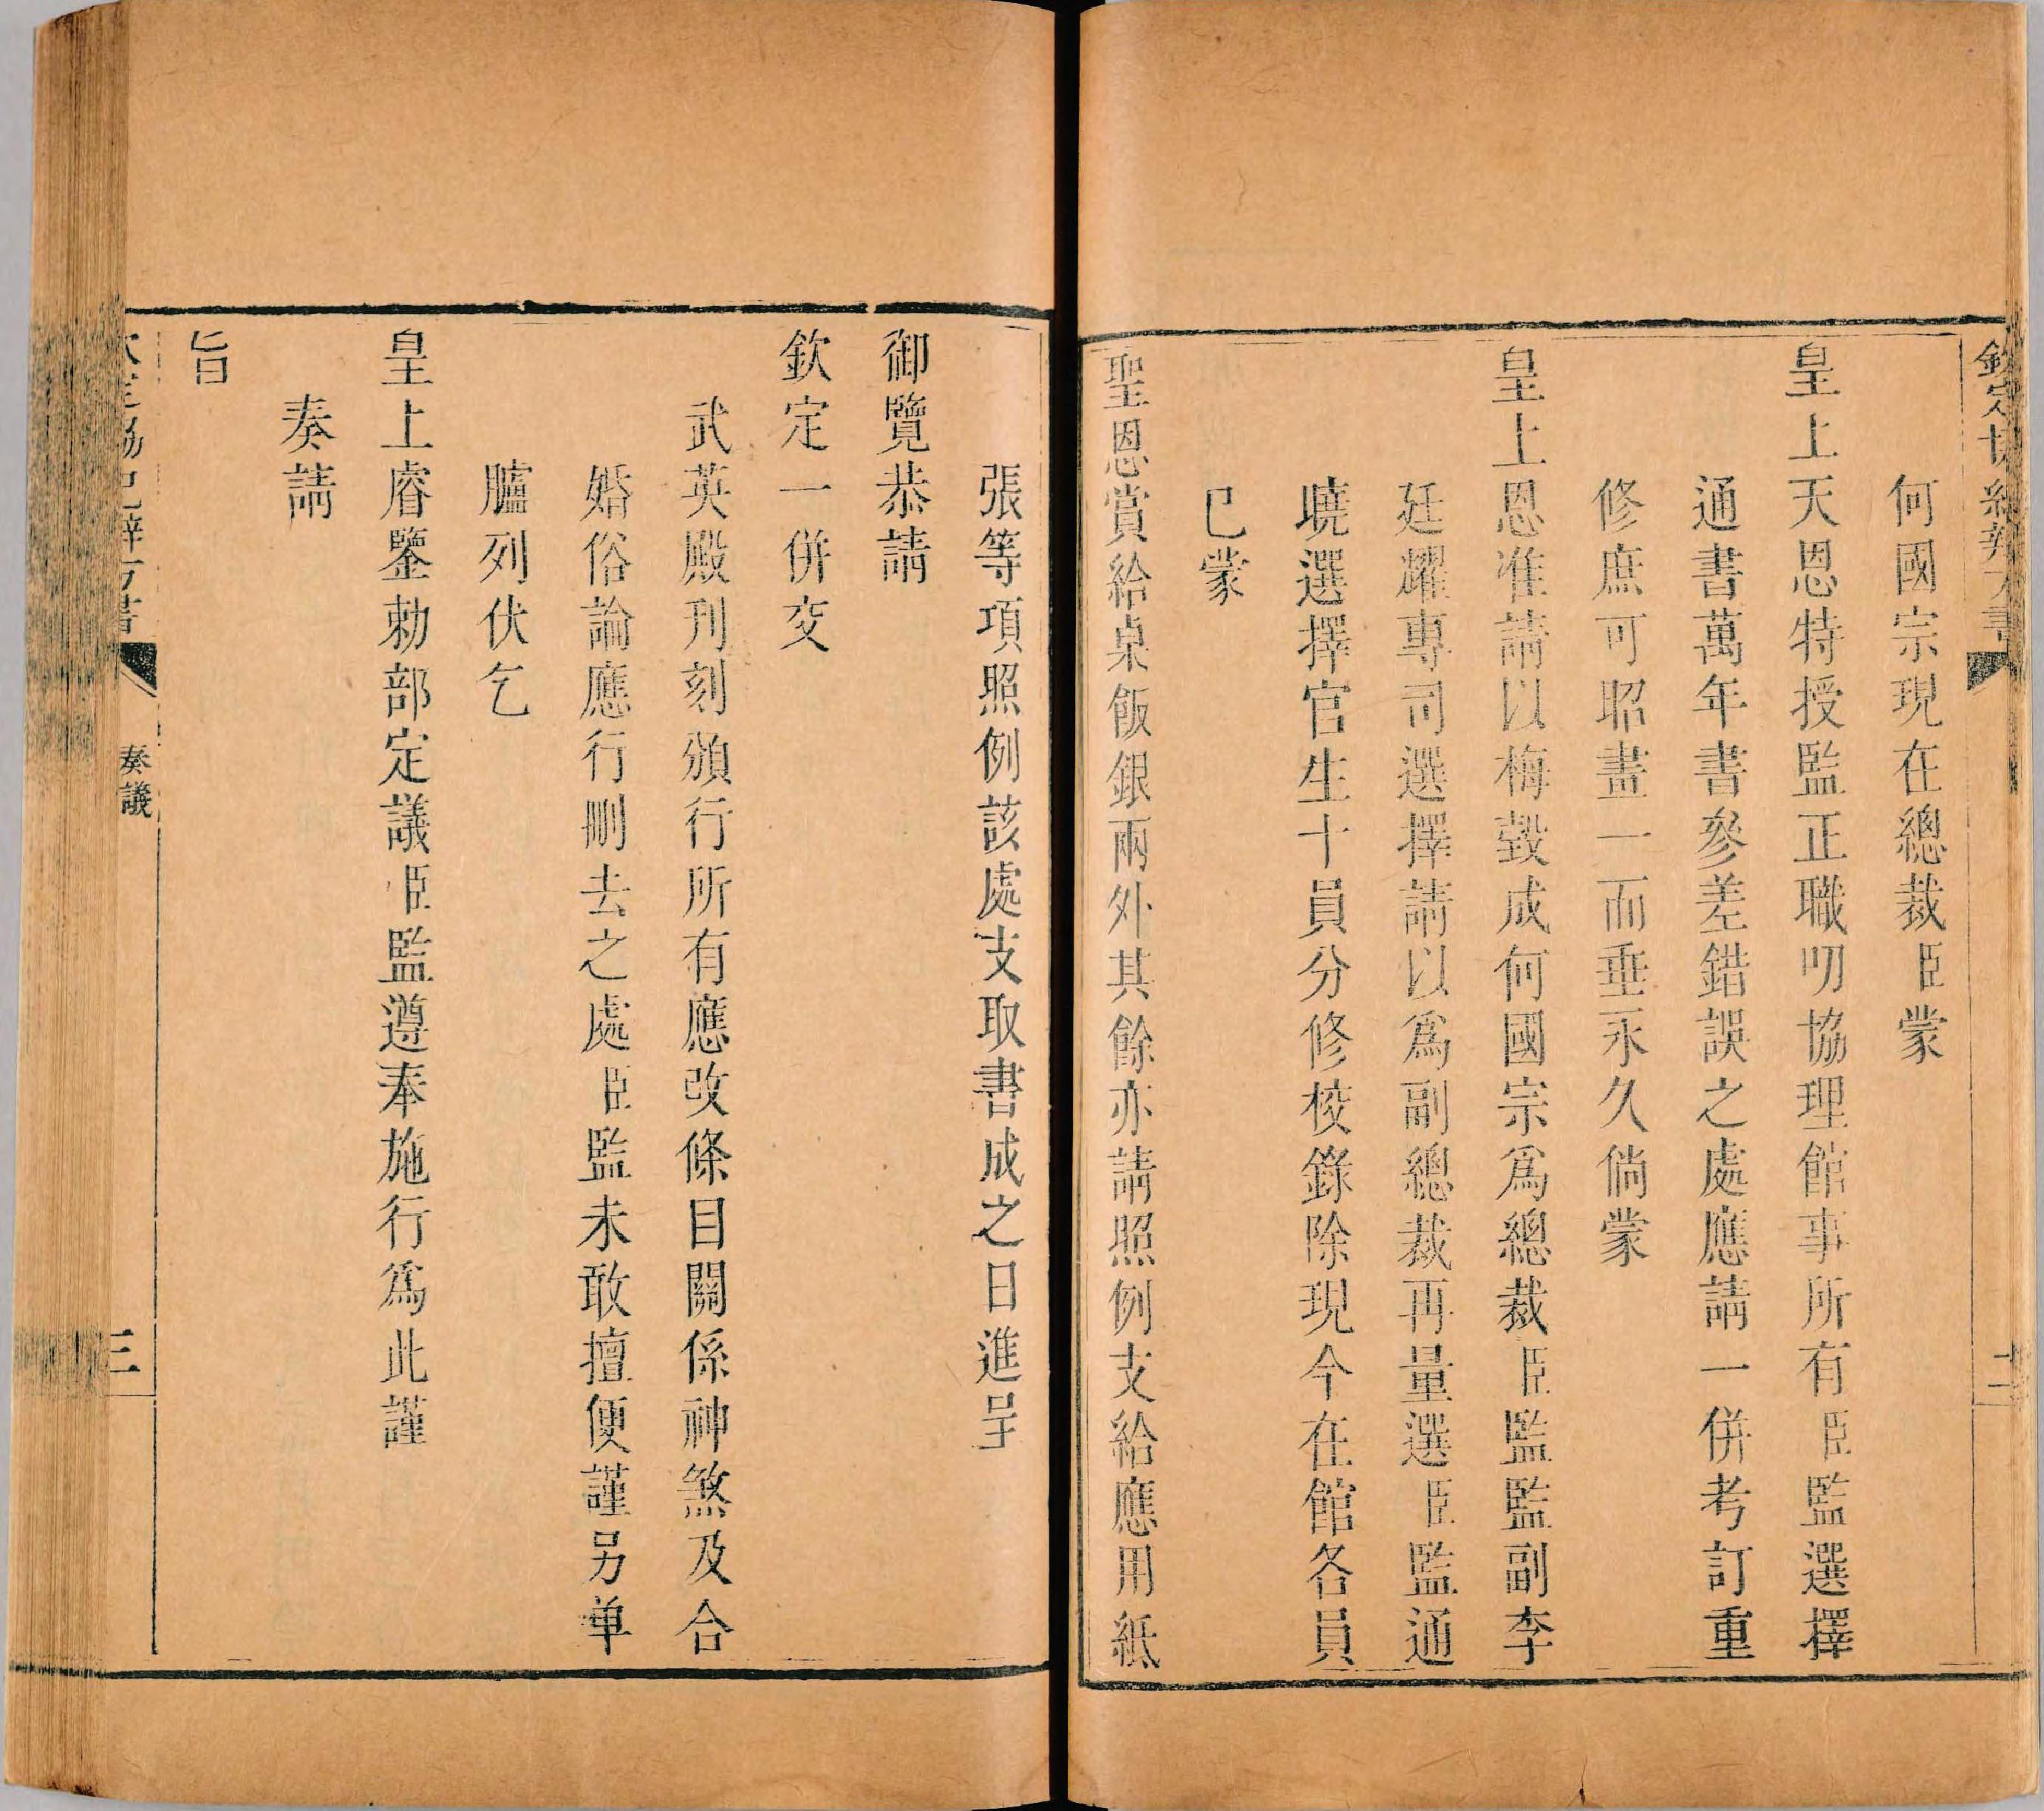 何國宗現在總裁臣蒙
皇上天恩特授監正職叨協理館事所有臣監選擇
通書萬年書參差錯誤之處應請一併考訂重
修庶可昭畫一而垂永久倘蒙
皇上恩准請以梅瑴成何國宗爲總裁臣監監副李
廷耀專司選擇請以爲副總裁再量選臣監通
曉選擇官生十員分修校錄除現今在館各員
已蒙
聖恩賞給桌飯銀兩外其餘亦請照例支給應用紙
張等項照例該處支取書成之日進呈
御覽恭請
欽定一併交
武英殿刊刻頒行所有應改條目關係神煞及合
婚俗論應行刪去之處臣監未敢擅便謹另單
臚列伏乞
皇上睿鑒勅部定議臣監遵奉施行爲此謹
奏請
旨
奏議
三